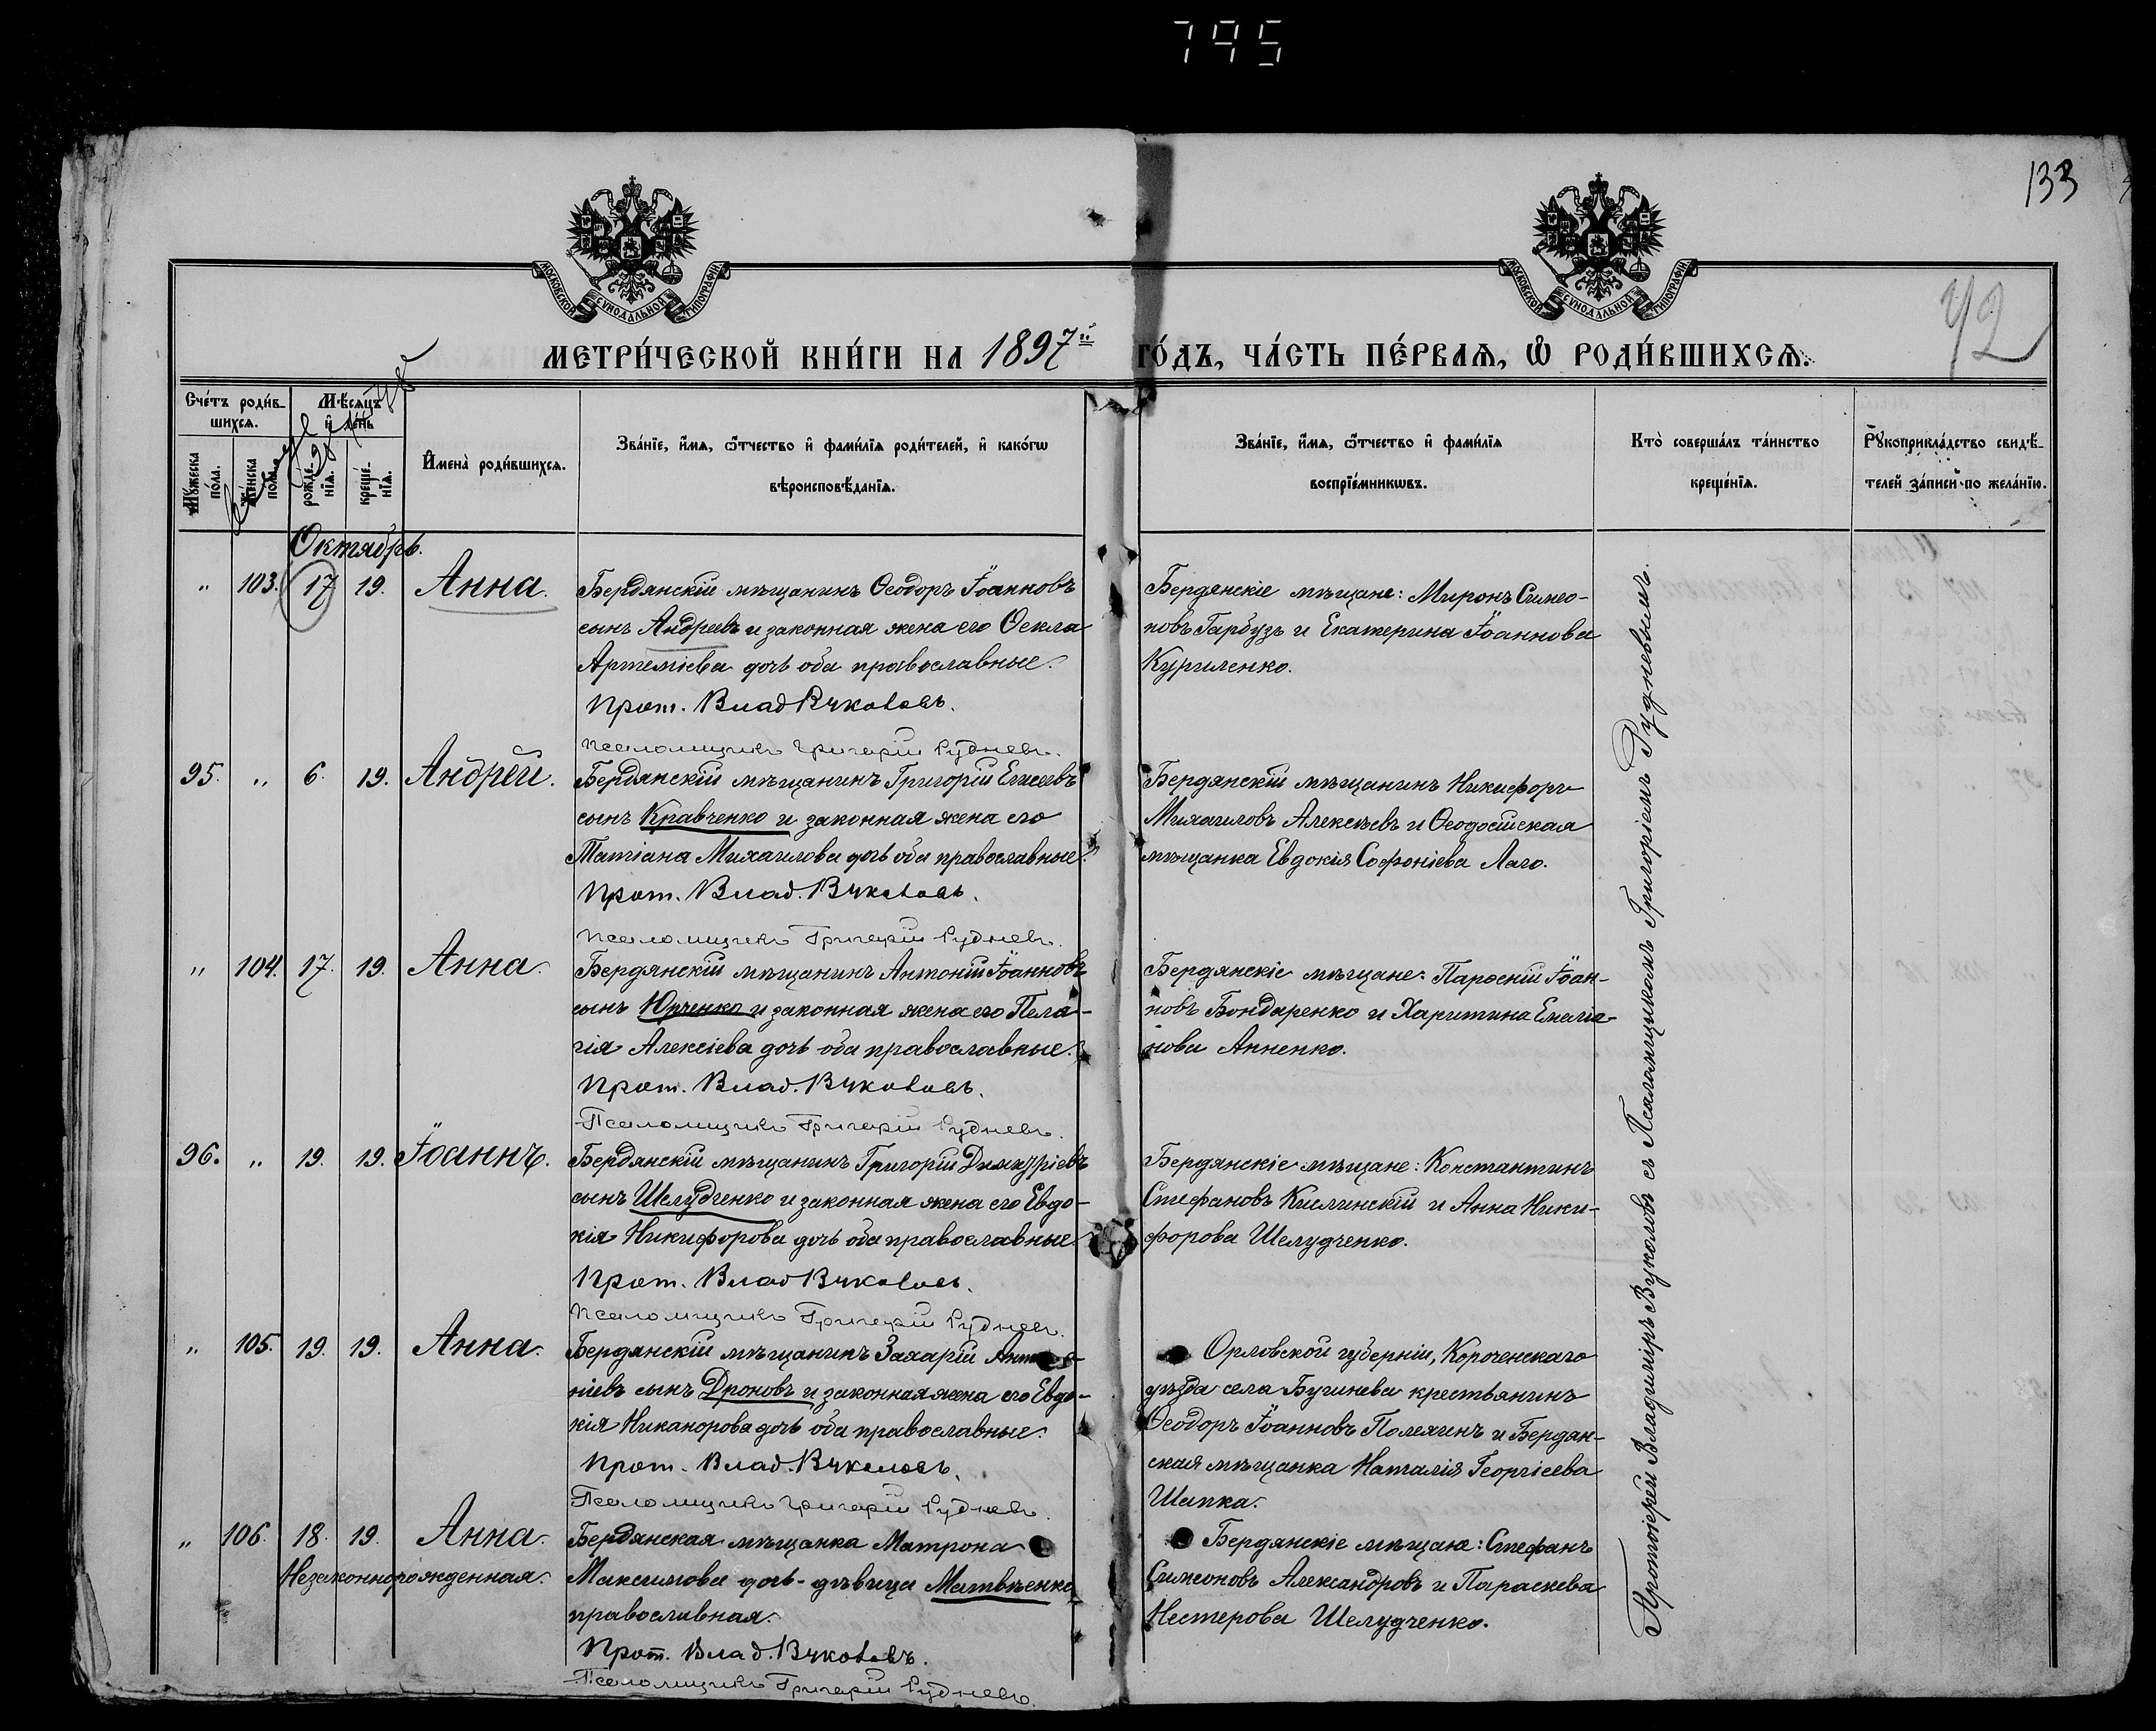 795
133
92
МОСКОВСКОЙ СѴНОДАЛЬНОЙ ТИПОГРАФІИ
МОСКОВСКОЙ СѴНОДАЛЬНОЙ ТИПОГРАФІИ
МЕТРИ́ЧЕСКОЙ КНИ́ГИ НА 1897й ГО́ДЪ, ЧА́СТЬ ПЕ́РВАѦ, Ѡ РОДИ́ВШИХСѦ.
Сче́тъ роди́в-
шихсѧ.
Мѣ́сѧцъ
и҆ де́нь
Мꙋ́жеска
по́ла.
Же́нска
по́ла.
рожде́-
нїѧ.
креще́-
нїѧ.
И҆мена̀ роди́вшихсѧ.
Зва́нїе, и҆́мѧ, ѻ҆́тчество и҆ фами́лїѧ роди́телей, и҆ како́гѡ
вѣроисповѣ́данїѧ.
Зва́нїе, и҆́мѧ, ѻ҆́тчество и҆ фами́лїѧ
воспрїе́мникѡвъ.
Кто̀ соверша́лъ та́инство
креще́нїѧ.
Рꙋкоприкла́дство свидѣ́-
телей за́писи по жела́нїю.
Октябрь.
" 103. 17 19. Анна.
Бердянскій мѣщанинъ Ѳеодоръ Іоанновъ
сынъ Андреевъ и законная жена его Ѳекла
Артеміева дочь оба православные.
Прот. Влад Вуколовъ.
Псаломщикъ Григорій Рудневъ.
Бердянскіе мѣщане: Миронъ Симео-
новъ Гарбузъ и Екатерина Іоаннова
Куриленко.
95. " 6. 19. Андрей.
Бердянскій мѣщанинъ Григорій Елисеевъ
сынъ Кравченко и законная жена его
Татіана Михаилова дочь оба православные.
Прот. Влад. Вуколовъ.
Псаломщикъ Григорій Рудневъ.
Бердянскій мѣщанинъ Никифоръ
Михаиловъ Алексѣевъ и Ѳеодосійская
мѣщанка Евдокія Софоніева Лаго.
" 104. 17. 19. Анна.
Бердянскій мѣщанинъ Антоній Іоанновъ
сынъ Юрченко и законная жена его Пела-
гія Алексіева дочь оба православные.
Прот. Влад. Вуколовъ.
Псаломщикъ Григорій Рудневъ.
Бердянскіе мѣщане: Парѳеній Іоан-
новъ Бондаренко и Харитина Емелiа-
нова Анненко.
96. " 19. 19. Іоаннъ.
Бердянскій мѣщанинъ Григорій Димитріевъ
сынъ Шелудченко и законная жена его Евдо-
кія Никифорова дочь оба православные
Прот. Влад Вуколовъ.
Псаломщикъ Григорій Рудневъ.
Бердянскіе мѣщане: Константинъ
Стефановъ Кислинскій и Анна Ники-
форова Шелудченко.
" 105. 19. 19. Анна.
Бердянскій мѣщанинъ Захарій Анто-
ніевъ сынъ Дроновъ и законная жена его Евдо-
кія Никанорова дочь оба православные.
Прот. Влад. Вуколовъ.
Псаломщикъ Григорій Рудневъ.
Орловской губерніи, Короченскаго
уѣзда села Бугинева крестьянинъ
Ѳеодоръ Іоанновъ Полехинъ и Бердян-
ская мѣщанка Наталія Георгіева
Шапка.
" 106. 18. 19. Анна.
Незаконнорожденная.
Бердянская мѣщанка Матрона
Максимова дочь-дѣвица Матвѣенко
православная.
Прот. Влад. Вуколовъ.
Псаломщикъ Григорій Рудневъ.
Бердянскіе мѣщане: Стефанъ
Симеоновъ Александровъ и Параскева
Нестерова Шелудченко.
Протоіерей Владиміръ Вуколовъ съ Псаломщикомъ Григоріемъ Рудневымъ.